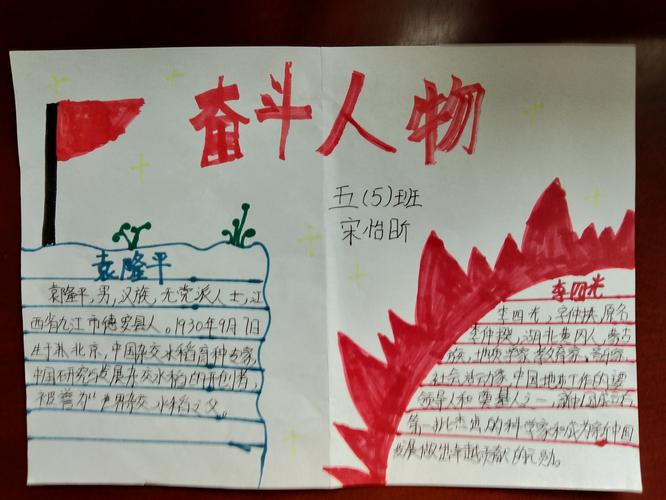 奋斗人物
五(5)班
宋怡昕
袁隆平
袁隆平,男,汉族,无党派人士,江
西省九江市德安县人。1930年9月7日
生于北京,中国杂交水稻育种专家,
中国研究与发展杂交水稻的开创者,
被誉为"世界杂交水稻之父"。
李四光
李四光,字仲揆,原名
李仲揆,湖北黄冈人,蒙古
族,地质学家,教育家,音乐家,
社会活动家,中国地质工作的
领导人和奠基人之一,新中国成立后
第一批杰出的科学家和成为新中国
发展做出卓越贡献的元勋。